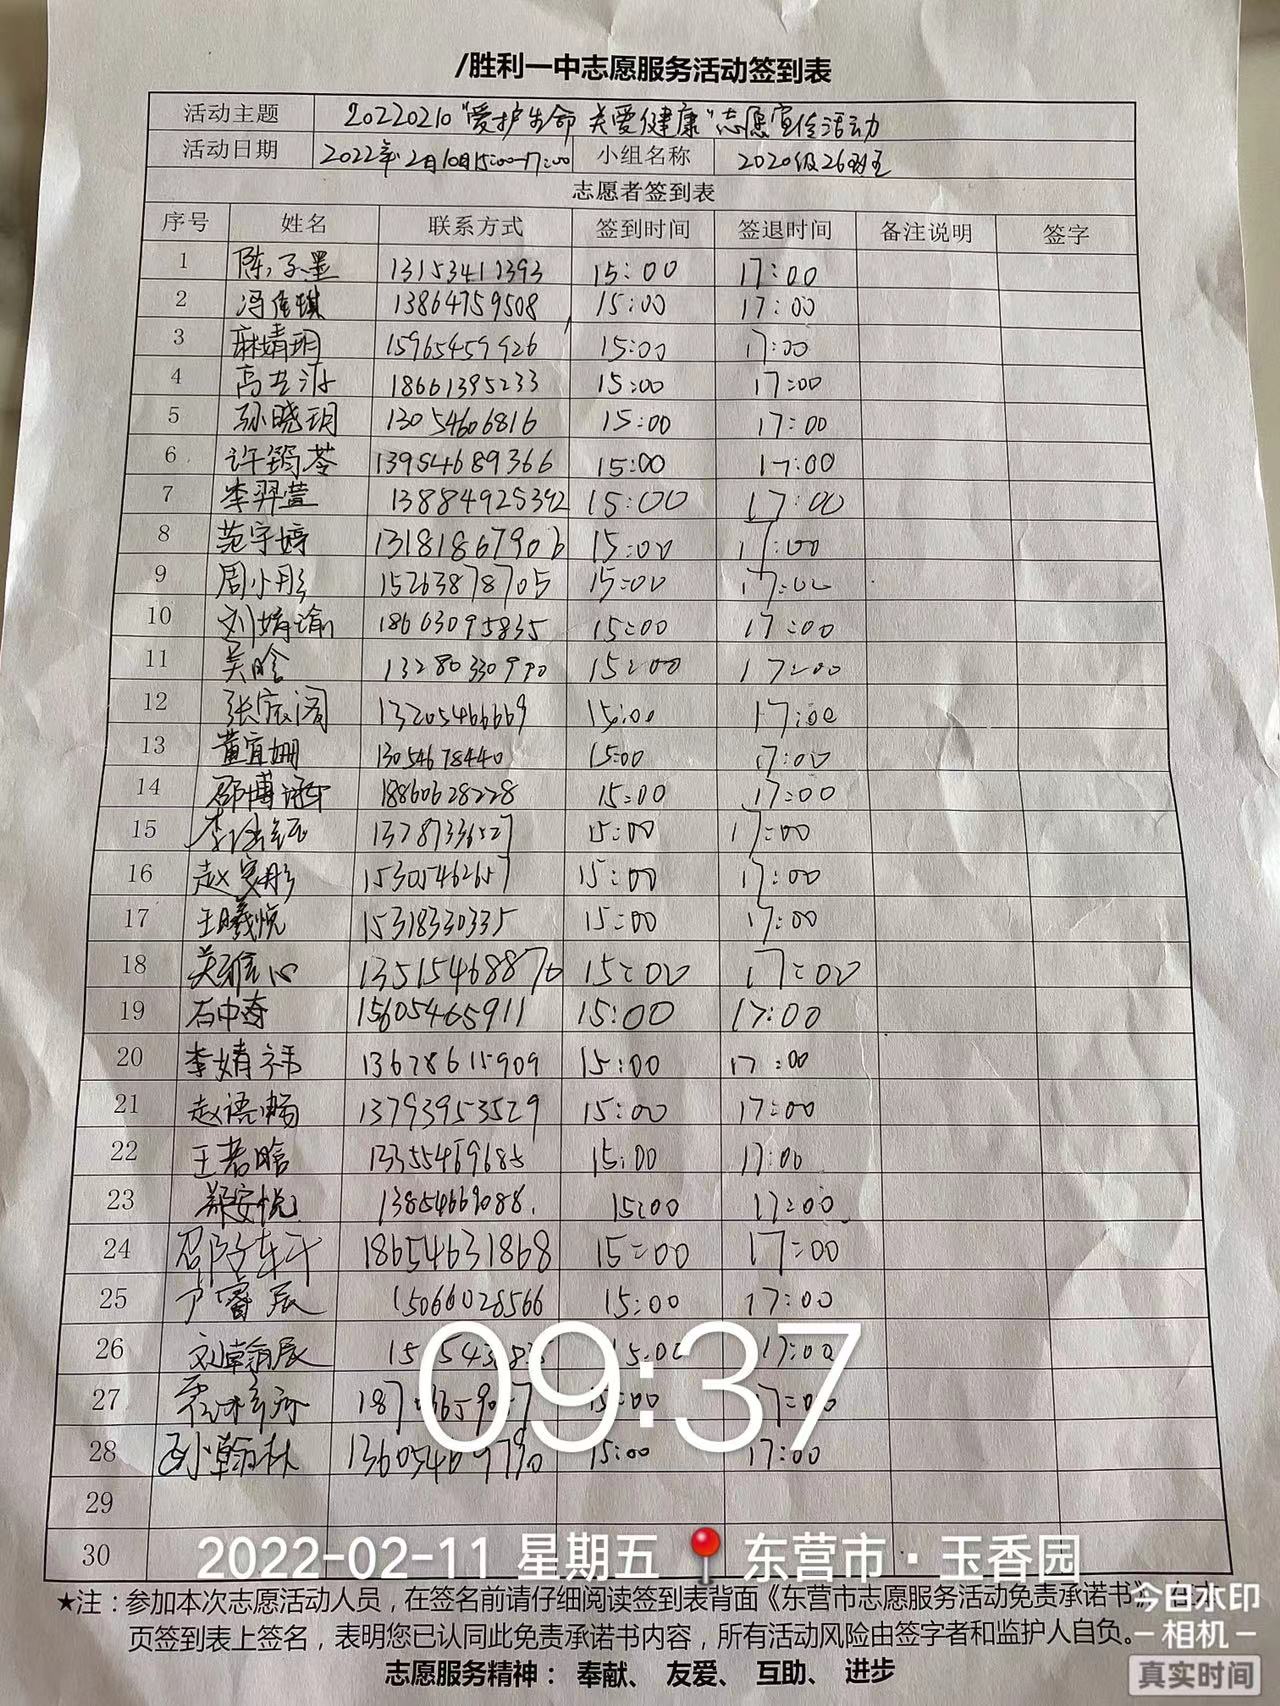 /胜利一中志愿服务活动签到表
活动主题 20220210“爱护生命 关爱健康”志愿宣传活动
活动日期 2022年2月10日15:00-17:00 小组名称 2020级26班
志愿者签到表
序号 姓名 联系方式 签到时间 签退时间 备注说明 签字
1 陈子墨 13153411393 15:00 17:00
2 冯佳琪 13864759508 15:00 17:00
3 麻婧玥 15965459926 15:00 17:00
4 18661395233 15:00 17:00
5 孙晓玥 13054606816 15:00 17:00
6 许筠苓 13954689366 15:00 17:00
7 李羿萱 13884925392 15:00 17:00
8 范宇婷 13181867906 15:00 17:00
9 周小彤 15263878705 15:00 17:00
10 刘婧瑜 18663095835 15:00 17:00
11 吴晗 13280330990 15:00 17:00
12 13205466669 15:00 17:00
13 黄宜姗 13054678440 15:00 17:00
14 邵博涵 18860628228 15:00 17:00
15 15:00 17:00
16 赵奕彤 15305462657 15:00 17:00
17 王曦悦 15318330335 15:00 17:00
18 13515468876 15:00 17:00
19 石中奇 15605465911 15:00 17:00
20 李婧祎 13678615909 15:00 17:00
21 赵语畅 13793953529 15:00 17:00
22 王若晗 13355469685 15:00 17:00
23 郑安悦 13854669088 15:00 17:00
24 18654631868 15:00 17:00
25 卢睿辰 15066028566 15:00 17:00
26 刘翰辰 15:00 17:00
27 15:00 17:00
28 孙翰林 13605469790 15:00 17:00
29
30
09:37
2022-02-11 星期五 东营市·玉香园
★注：参加本次志愿活动人员，在签名前请仔细阅读签到表背面《东营市志愿服务活动免责承诺书》，在本
页签到表上签名，表明您已认同此免责承诺书内容，所有活动风险由签字者和监护人自负。
志愿服务精神： 奉献、 友爱、 互助、 进步
今日水印
-相机-
真实时间